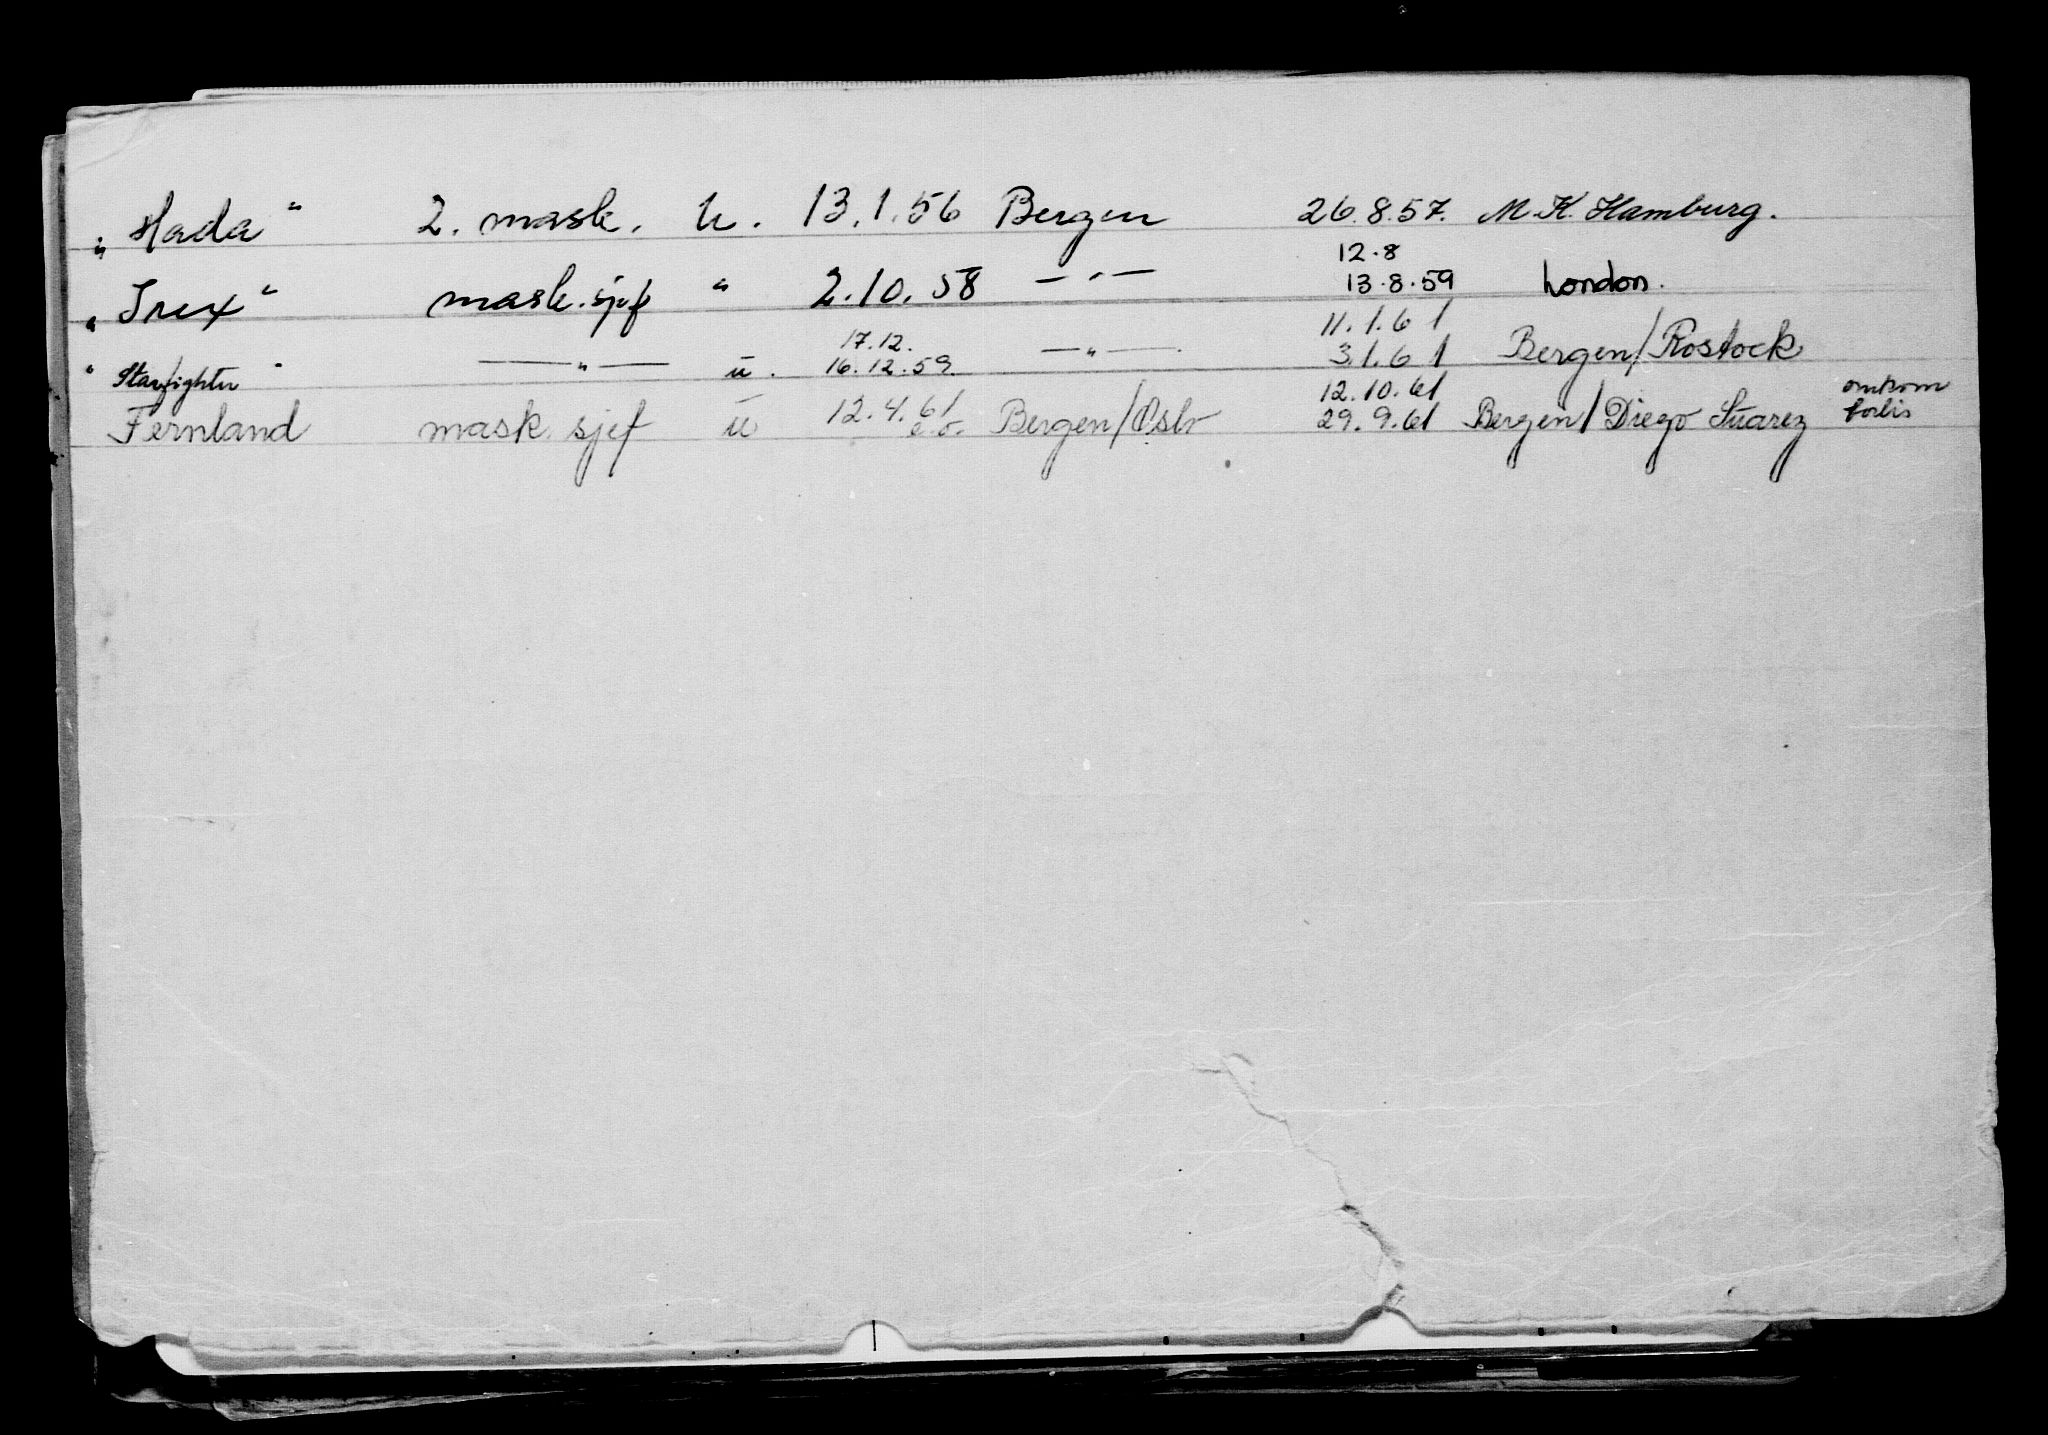 „Hada" 2. mask. U. 13.1.56 Bergen 26.8.57. M.K. Hamburg.
12.8
„Irex" mask.sjef " 2.10.58 —"— 13.8.59 London.
17.12. 11.1.61
"Starfighter" —"— u. 16.12.59. —"— 3.1.61 Bergen/Rostock
12.10.61 omkom
Fernland mask. sjef u 12.4.61 Bergen/Oslo 29.9.61 Bergen/Diego Suarez forlis
e.o.